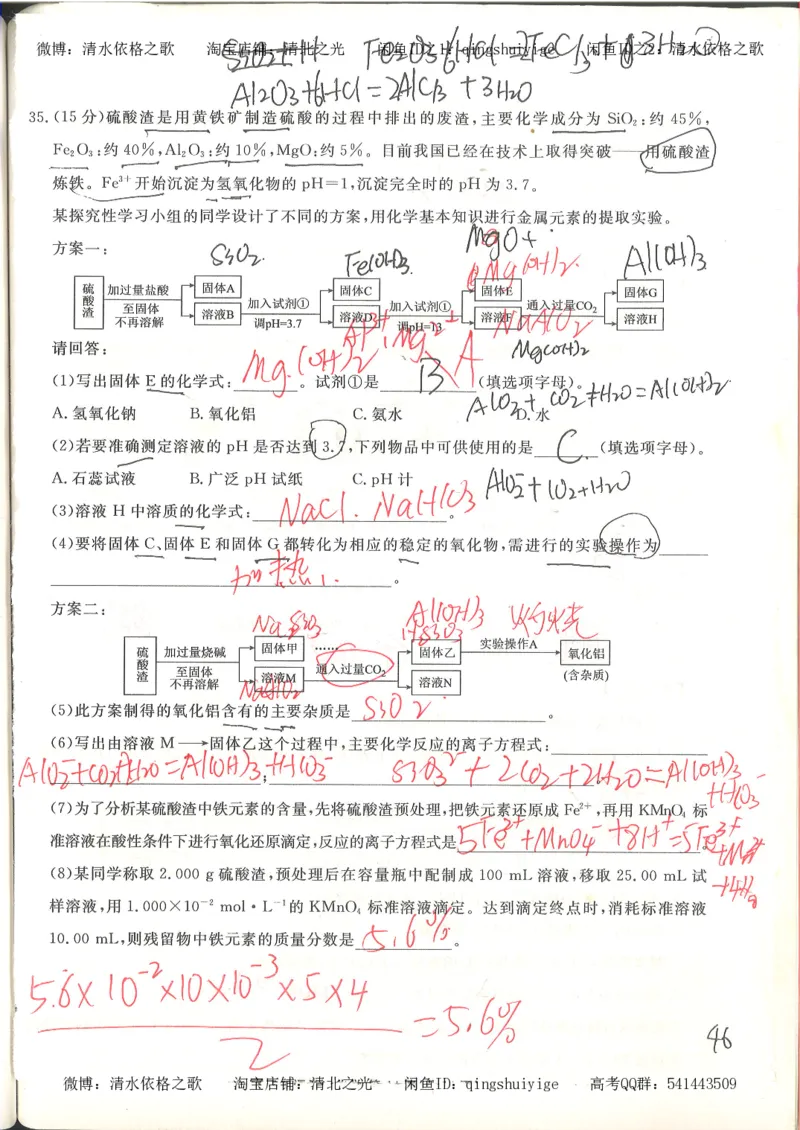 微博：清水依格之歌 淘宝店铺：清北之光 闲鱼ID之1：qingshuiyige 闲鱼ID之2：清水依格之歌
Fe2O3+6HCl=2FeCl3+3H2O
Al2O3+6HCl=2AlCl3+3H2O
35.(15分)硫酸渣是用黄铁矿制造硫酸的过程中排出的废渣,主要化学成分为 SiO₂:约 45%,
Fe₂O₃:约 40%,Al₂O₃:约 10%,MgO:约 5%。目前我国已经在技术上取得突破——用硫酸渣
炼铁。Fe³⁺开始沉淀为氢氧化物的 pH=1,沉淀完全时的 pH 为 3.7。
某探究性学习小组的同学设计了不同的方案,用化学基本知识进行金属元素的提取实验。
方案一：
SiO2 Fe(OH)3 MgO+ Mg(OH)2 Al(OH)3
硫酸渣 加过量盐酸 至固体不再溶解 固体A 溶液B 加入试剂① 调pH=3.7 固体C 溶液D 加入试剂① 调pH=13 固体E 溶液F 通入过量CO₂ 固体G 溶液H
Al3+,Mg2+ NaAlO2
请回答： Mg(OH)2
(1)写出固体 E 的化学式: Mg(OH)2 。试剂①是 B A (填选项字母)。
AlO2 + CO2+H2O=Al(OH)2
A.氢氧化钠 B.氧化铝 C.氨水 D.水
(2)若要准确测定溶液的 pH 是否达到 3.7,下列物品中可供使用的是 C (填选项字母)。
A.石蕊试液 B.广泛 pH 试纸 C.pH 计 AlO2-+CO2+H2O
(3)溶液 H 中溶质的化学式: NaCl. NaHCO3 。
(4)要将固体 C、固体 E 和固体 G 都转化为相应的稳定的氧化物,需进行的实验操作为
加热 。
方案二：
NaSiO3 Al(OH)3 H2SiO3 灼烧
硫酸渣 加过量烧碱 至固体不再溶解 固体甲 …… 溶液M 通入过量CO₂ 固体乙 溶液N 实验操作A 氧化铝 (含杂质)
NaAlO2
(5)此方案制得的氧化铝含有的主要杂质是 SiO2 。
(6)写出由溶液 M⟶固体乙这个过程中,主要化学反应的离子方程式:
AlO2-+CO2+H2O=Al(OH)3+HCO3- ; SiO3²⁻+2CO2+2H2O=Al(OH)3+HCO3-
(7)为了分析某硫酸渣中铁元素的含量,先将硫酸渣预处理,把铁元素还原成 Fe²⁺,再用 KMnO₄ 标
准溶液在酸性条件下进行氧化还原滴定,反应的离子方程式是 5Fe2++MnO4-+8H+=5Fe3++Mn2+ 。
+4H2O
(8)某同学称取 2.000 g 硫酸渣,预处理后在容量瓶中配制成 100 mL 溶液,移取 25.00 mL 试
样溶液,用 1.000×10⁻² mol·L⁻¹的 KMnO₄ 标准溶液滴定。达到滴定终点时,消耗标准溶液
10.00 mL,则残留物中铁元素的质量分数是 5.6% 。
5.6×10⁻²×10×10⁻³×5×4
=5.6%
2
46
微博：清水依格之歌 淘宝店铺：清北之光 闲鱼ID：qingshuiyige 高考QQ群：541443509